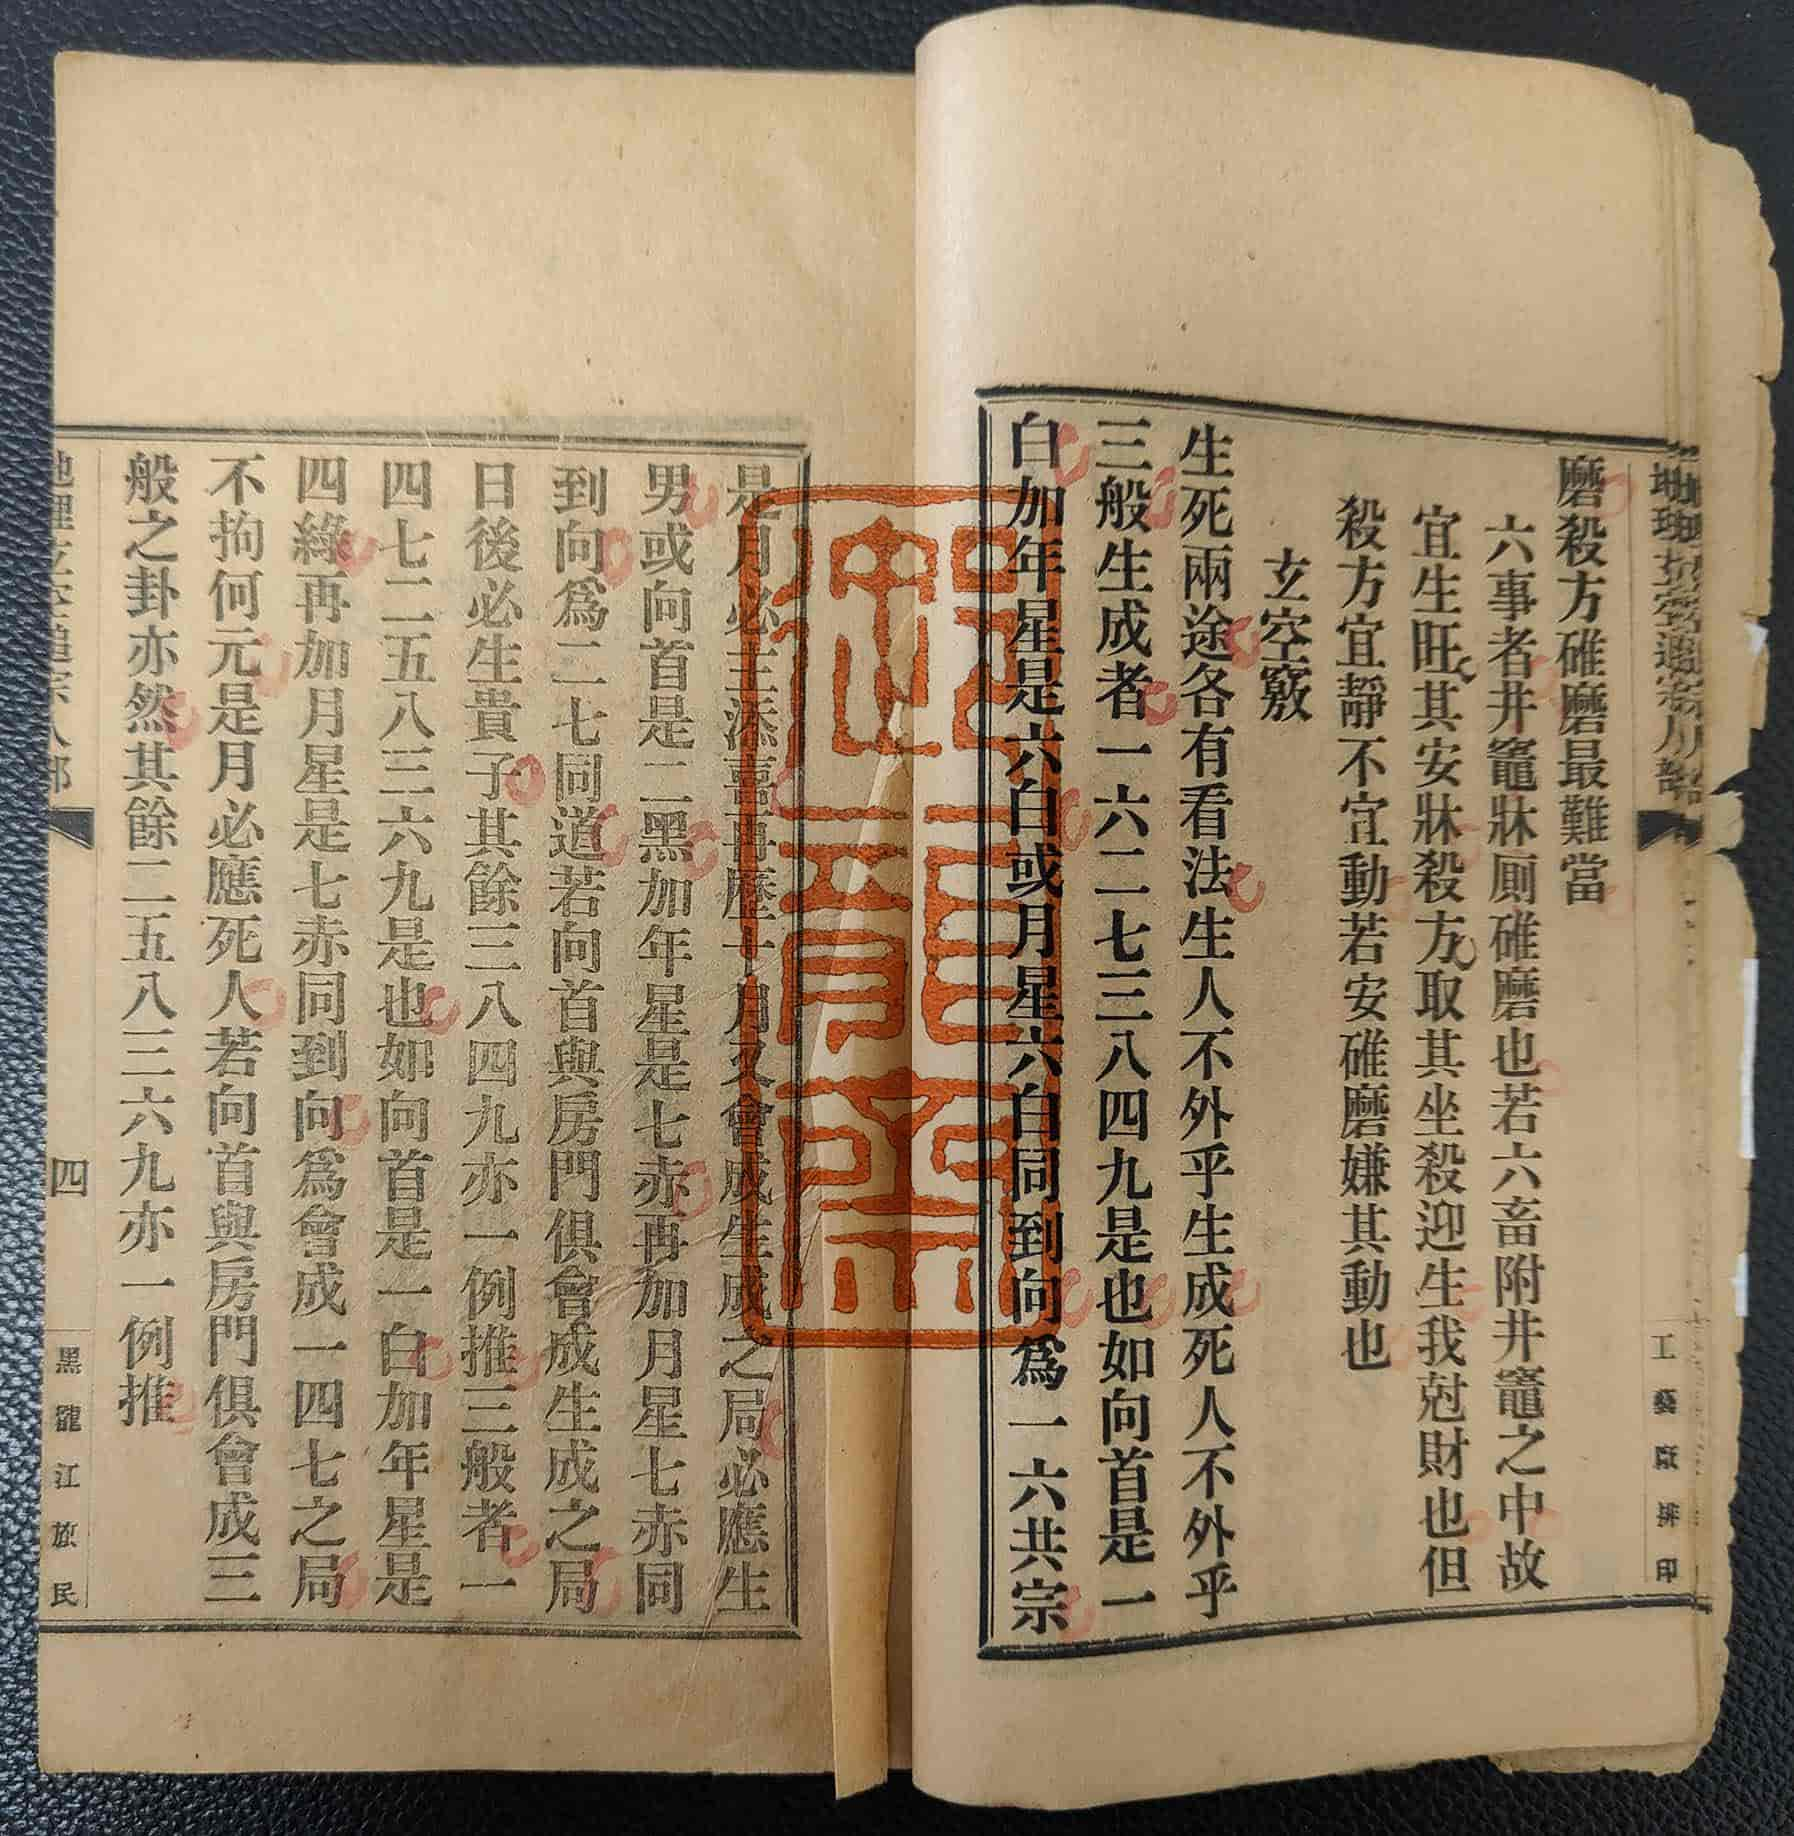 工藝廠排印
磨殺方碓磨最難當
六事者井竈牀厠碓磨也若六畜附井竈之中故
宜生旺其安牀殺方取其坐殺迎生我尅財也但
殺方宜靜不宜動若安碓磨嫌其動也
玄空竅
生死兩途各有看法生人不外乎生成死人不外乎
三般生成者一六二七三八四九是也如向首是一
白加年星是六白或月星六白同到向為一六共宗
是月必主添喜再歷十月又會成生成之局必應生
男或向首是二黑加年星是七赤再加月星七赤同
到向為二七同道若向首與房門俱會成生成之局
日後必生貴子其餘三八四九亦一例推三般者一
四七二五八三六九是也如向首是一白加年星是
四綠再加月星是七赤同到向為會成一四七之局
不拘何元是月必應死人若向首與房門俱會成三
般之卦亦然其餘二五八三六九亦一例推
四
黑龍江旅民